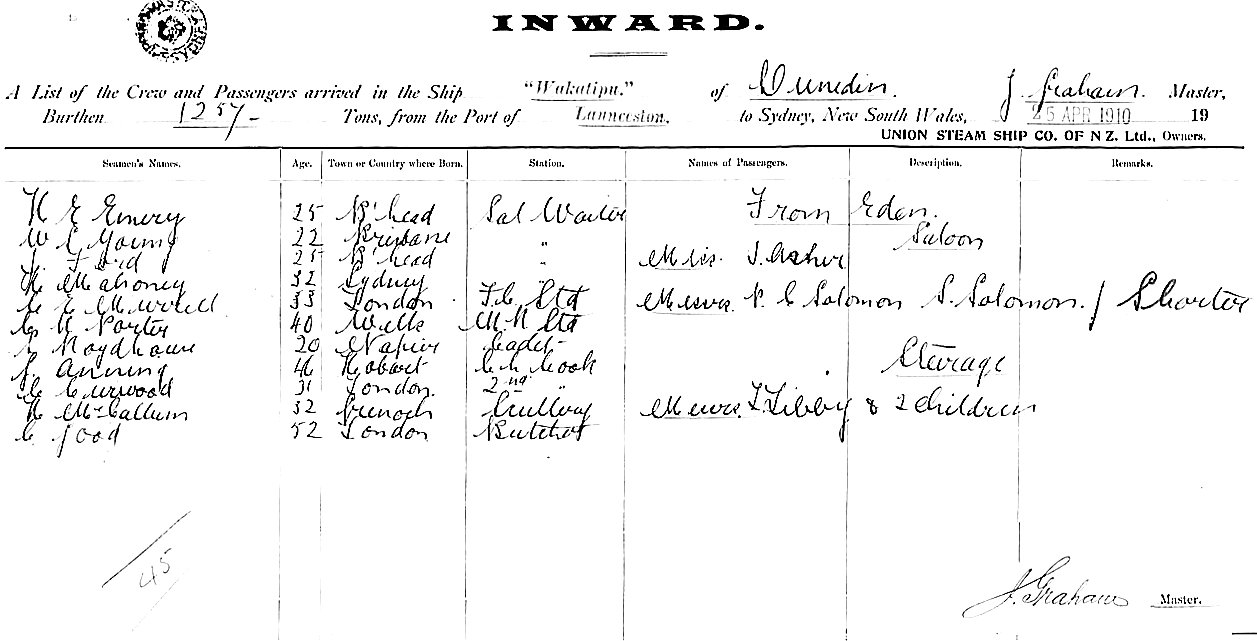 INWARD.
A List of the Crew and Passengers arrived in the Ship "Wakatipu." of Dunedin. J. Graham. Master,
Burthen 1257- Tons, from the Port of Launceston, to Sydney, New South Wales, 25 APR 1910 19
UNION STEAM SHIP CO. OF N Z. Ltd., Owners.
Seamen's Names. Age. Town or Country where Born. Station. Names of Passengers. Description. Remarks.
H E Emery 25 B'head Sal Waiter From Eden.
W E Young 22 Brisbane " Saloon
J. Ford 25 B'head " Miss.
H Mahoney 32 Sydney
E 33 London F.C. Std Messrs. P. C Solomon S. Solomon. / Shorter
H Porter 40 Wells M R Std
20 Napier Cadet
J. 46 Hobart Ch Cook Steerage
C Curwood 31 London. 2nd "
H McCallum 32 Grenoch Scullery Messrs. T Libby & 2 children
C Good 52 London Butcher
45
J. Graham Master.